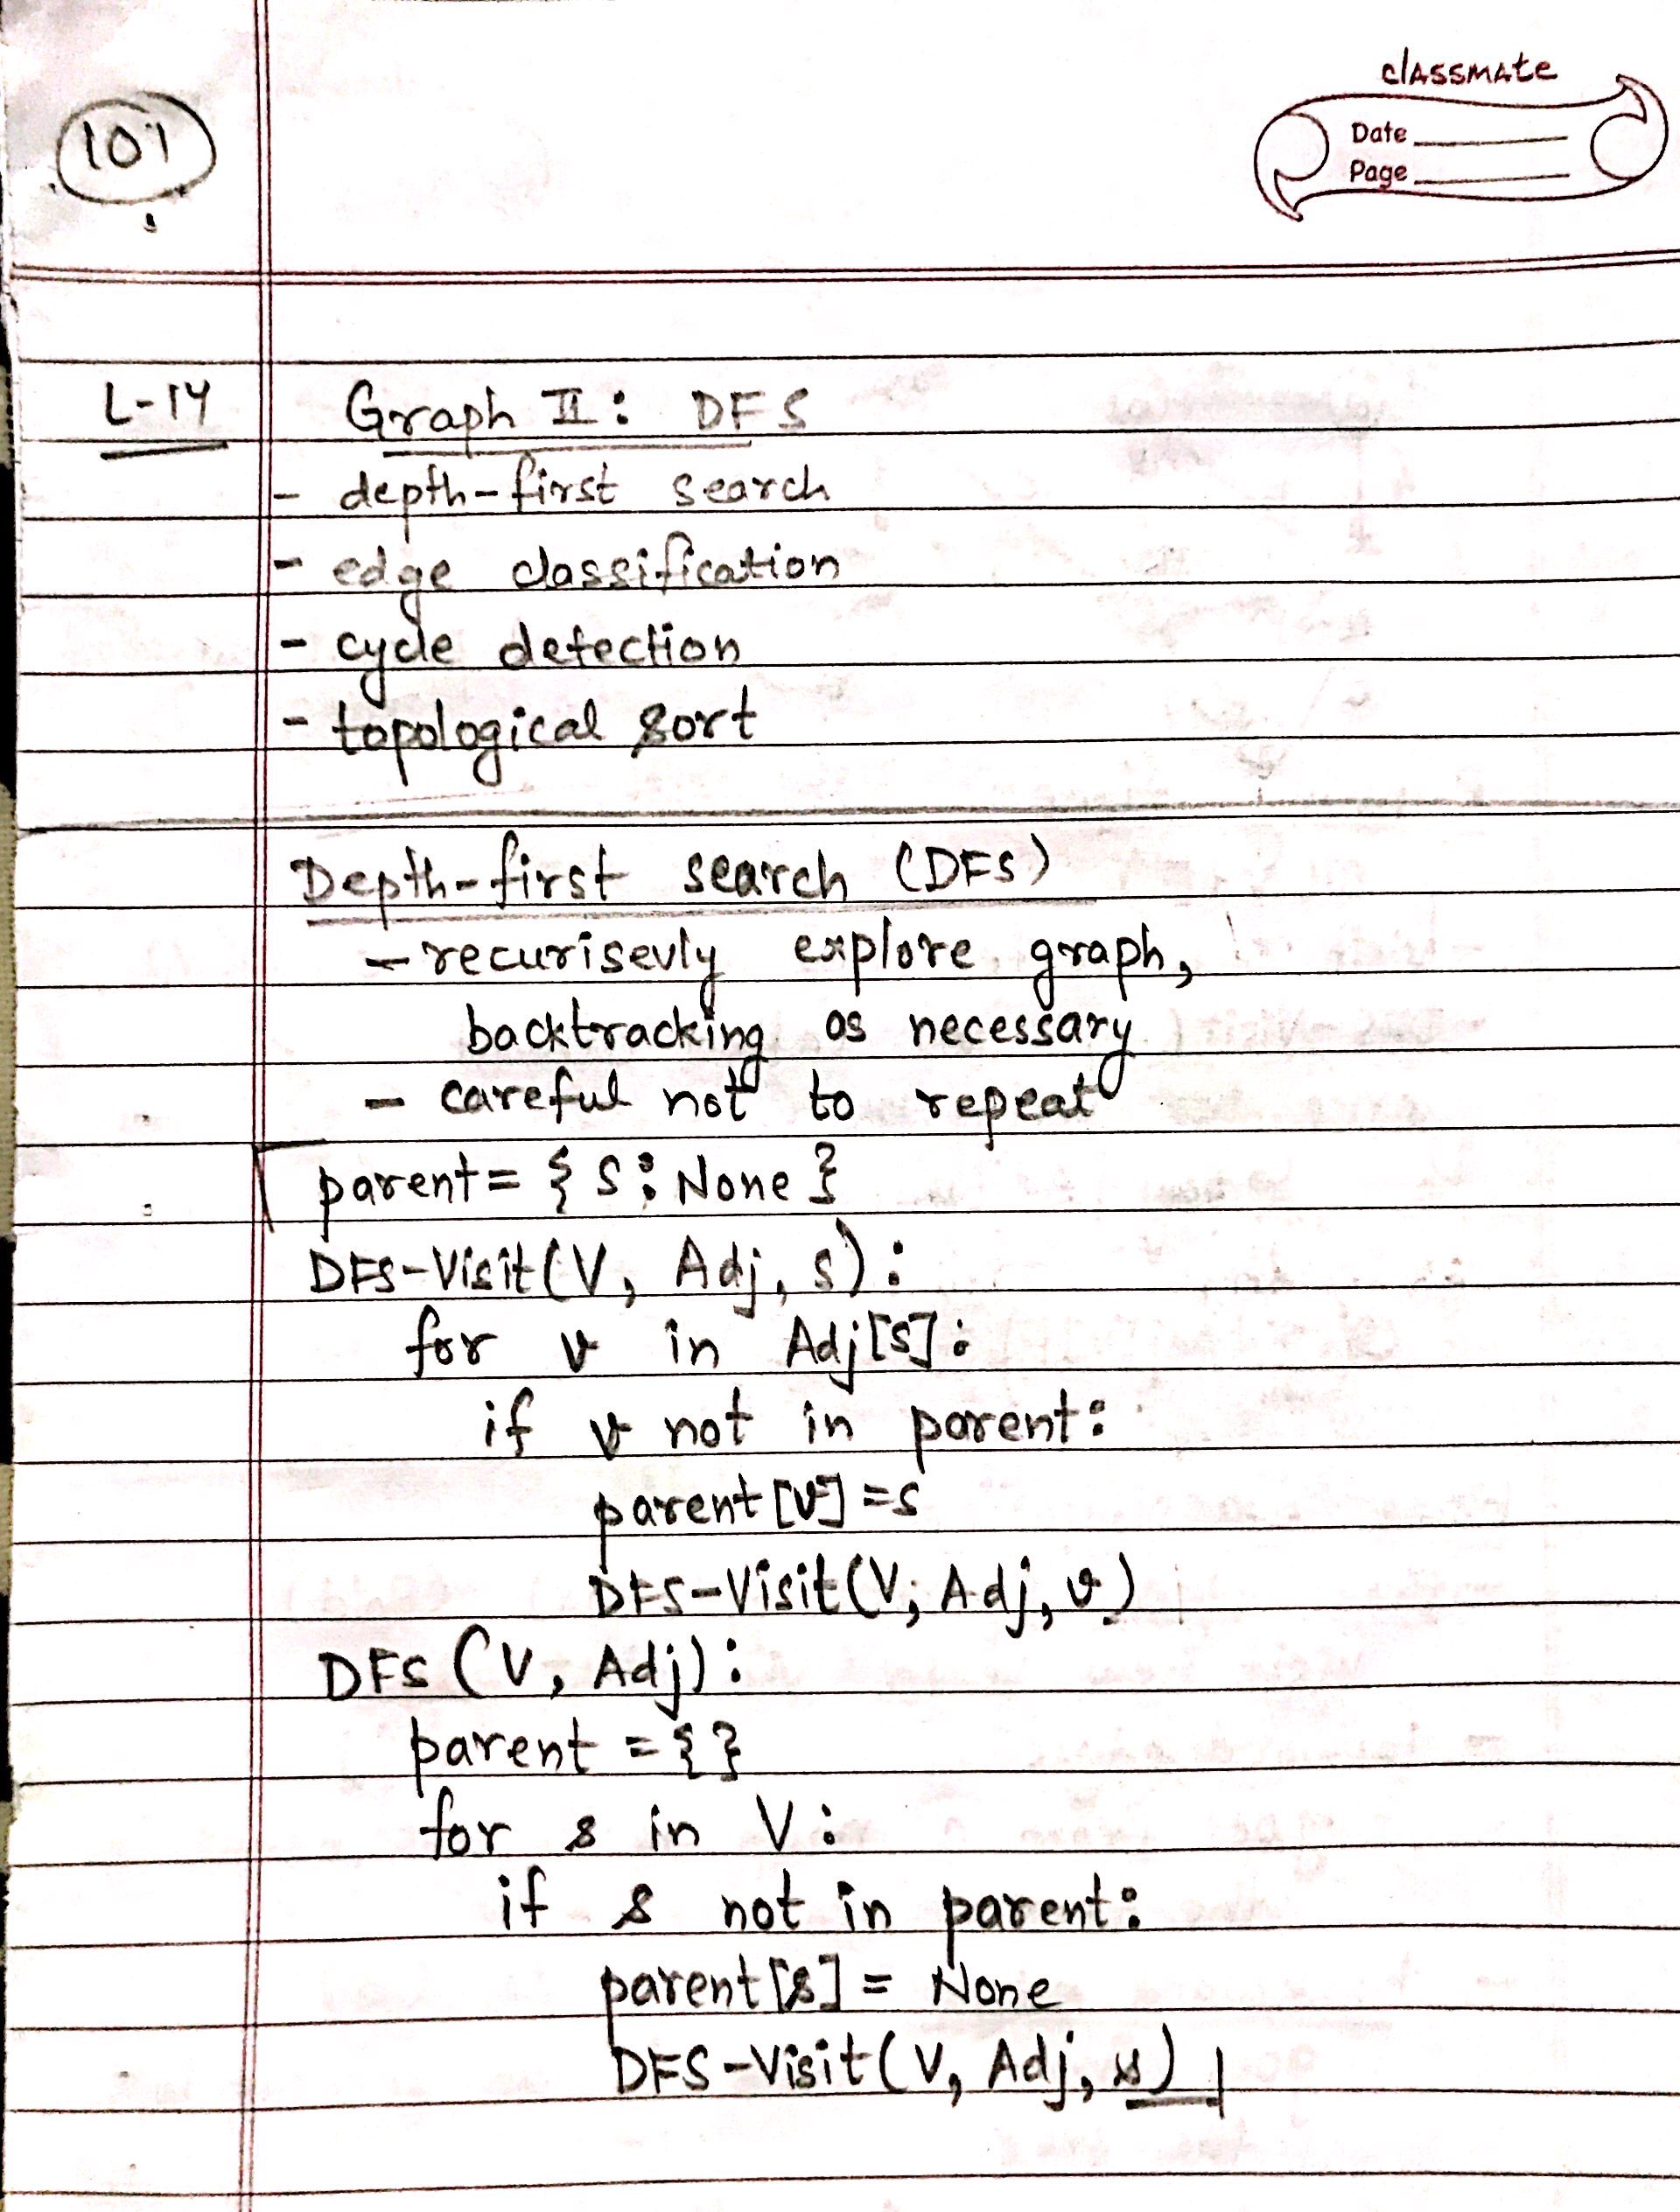 classmate
Date
Page
101
L-14 Graph II: DFS
- depth-first search
- edge classification
- cycle detection
- topological sort
Depth-first search (DFS)
- recurisevly explore graph,
backtracking as necessary
- careful not to repeat
parent = { s: None }
DFS-Visit(V, Adj, s):
for v in Adj[s]:
if v not in parent:
parent[v] = s
DFS-Visit(V, Adj, v)
DFS (V, Adj):
parent = { }
for s in V:
if s not in parent:
parent[s] = None
DFS-Visit(V, Adj, s)